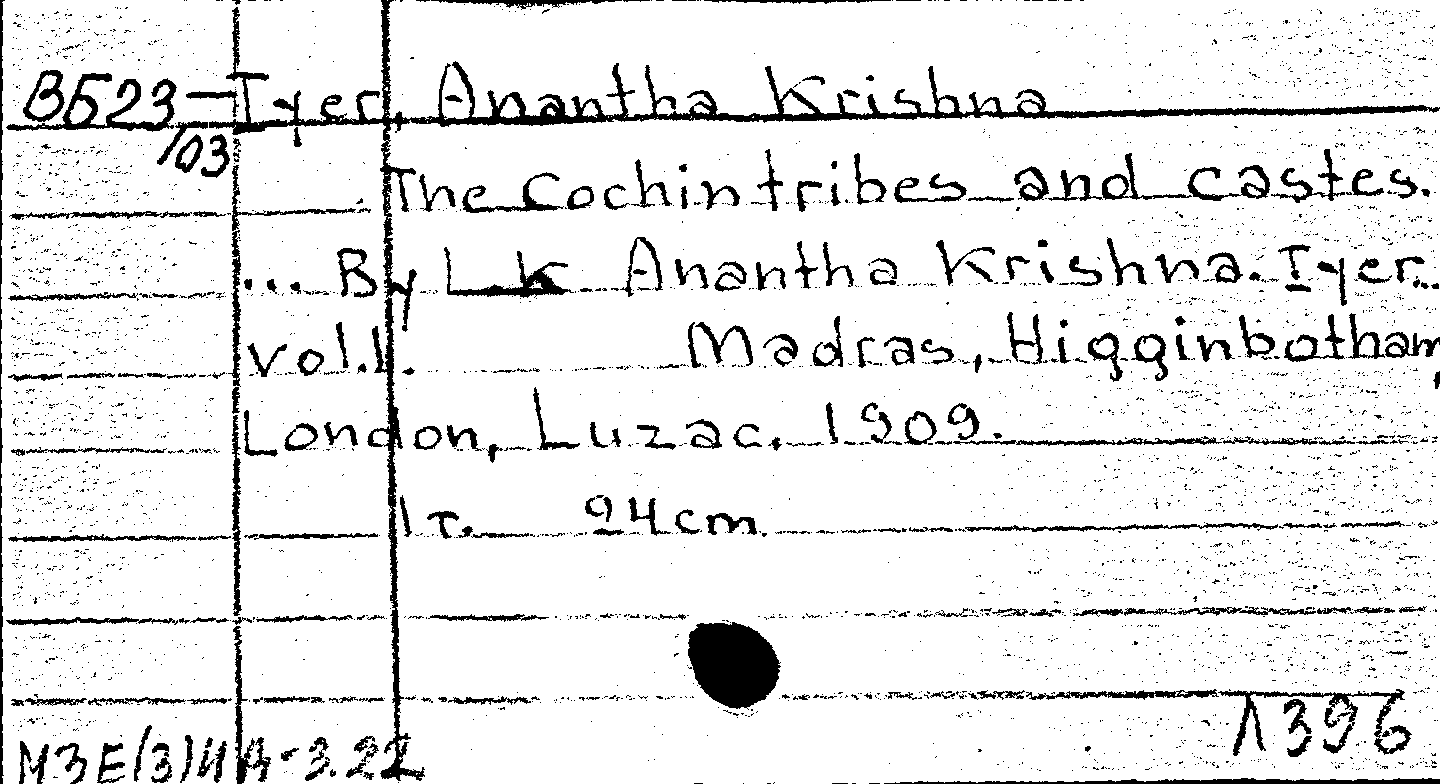 Б523 — Iyer, Anantha Krishna
/03
The Cochin tribes and castes.
... By L.K. Anantha Krishna. Iyer..
vol.1. Madras, Higginbotham,
London, Luzac, 1909.
1 т. 24cm.
МЗЕ(3)4 -3.22
Л396